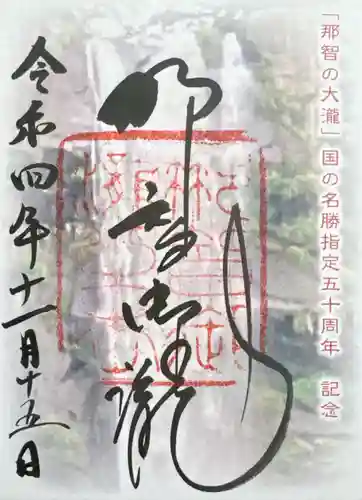 「那智の大瀧」国の名勝指定五十周年　記念
那智御瀧
令和四年十一月十五日